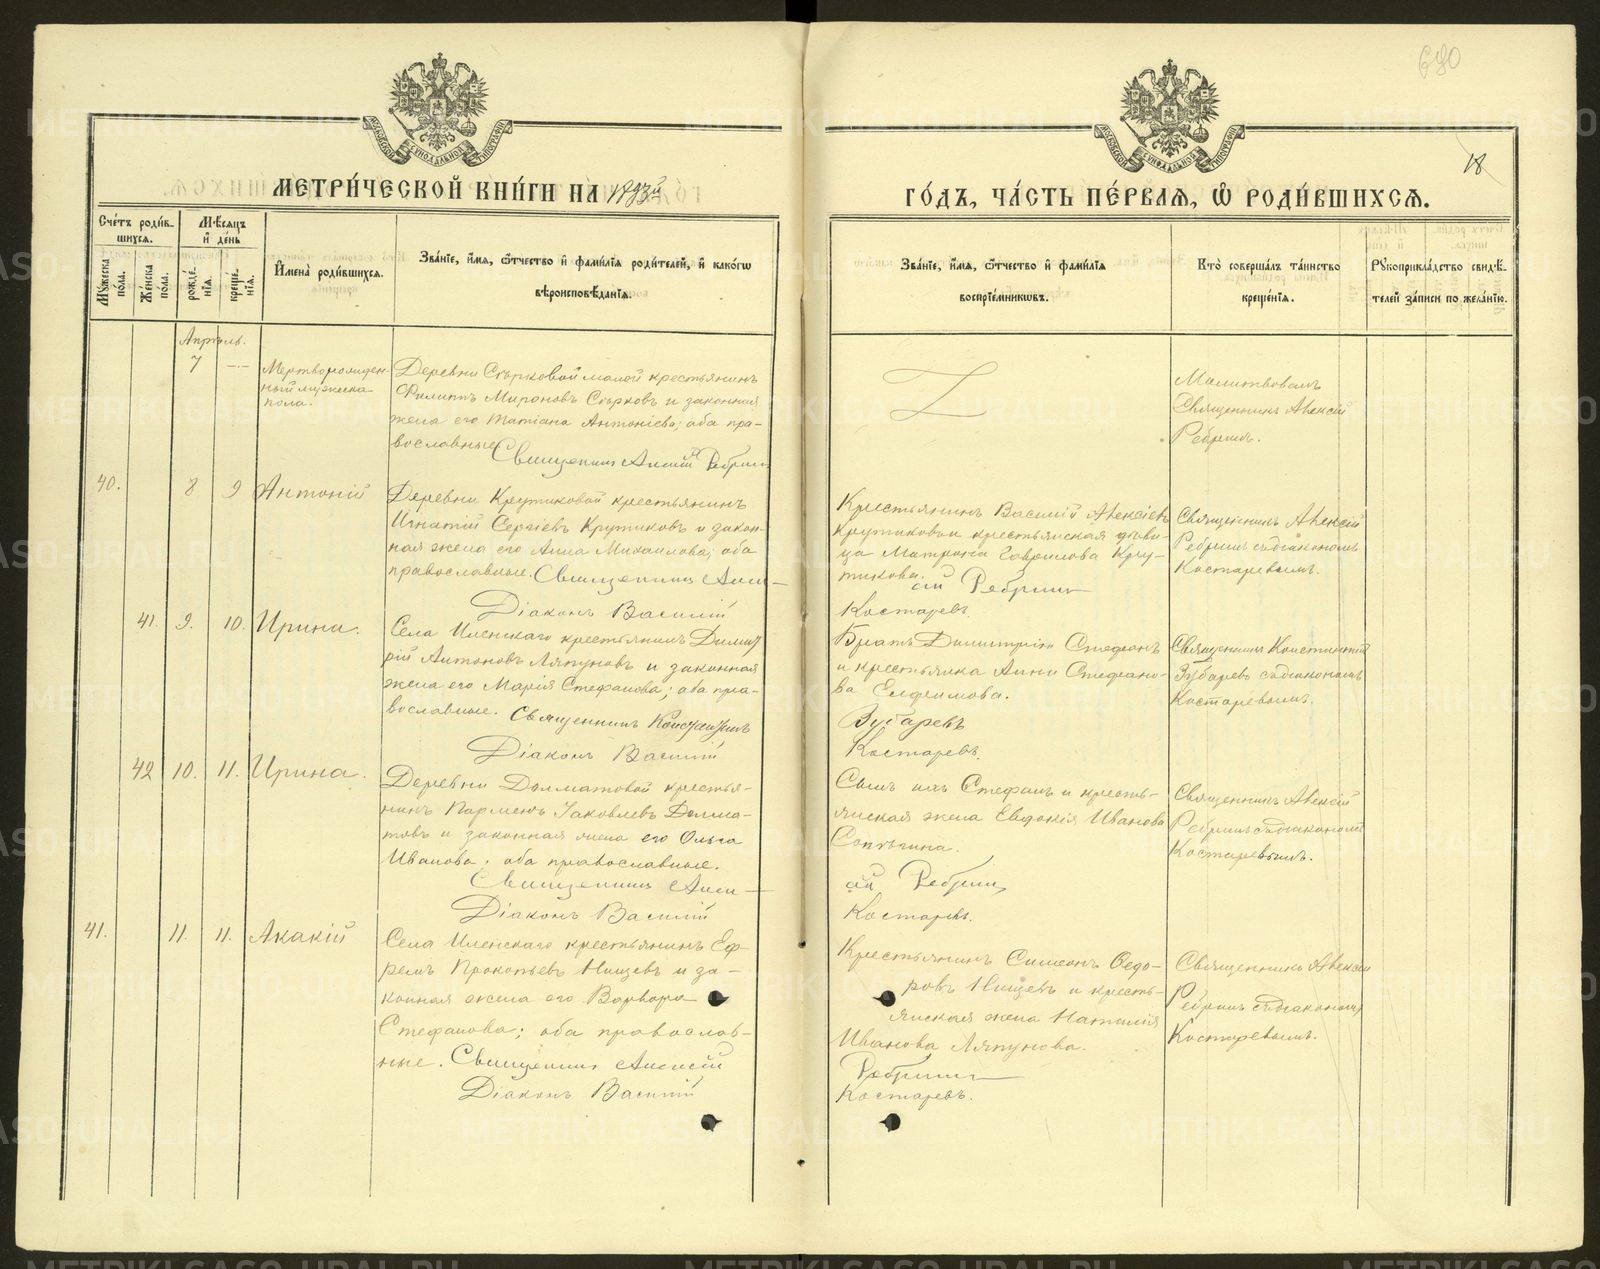 680
18
МОСКОВСКОЙ СѴНОДАЛЬНОЙ ТИПОГРАФІИ
МОСКОВСКОЙ СѴНОДАЛЬНОЙ ТИПОГРАФІИ
МЕТРИ́ЧЕСКОЙ КНИ́ГИ НА 1893й
ГО́ДЪ, ЧА́СТЬ ПЕ́РВАѦ, Ѡ҆ РОДИ́ВШИХСѦ.
Сче́тъ роди́в-
шихсѧ.
Му́жеска
по́ла.
Же́нска
по́ла.
Мѣ́сѧцъ
и҆ де́нь
рожде́-
нїѧ.
креще́-
нїѧ.
И҆мена̀ роди́вшихсѧ.
Зва́нїе, и҆́мѧ, ѻ҆́тчество и҆ фами́лїѧ роди́телей, и҆ како́гѡ
вѣроисповѣ́данїѧ.
Зва́нїе, и҆́мѧ, ѻ҆́тчество и҆ фами́лїѧ
воспрїе́мникѡвъ.
Кто̀ соверша́лъ та́инство
креще́нїѧ.
Рꙋкоприкла́дство свидѣ́-
телей за́писи по жела́нїю.
Апрѣль.
7
Мертворожден-
ный мужеска
пола.
Деревни Сѣрковой малой крестьянинъ
Филиппъ Мироновъ Сѣрковъ и законная
жена его Татіана Антоніева; оба пра-
вославные
Священникъ Алексій Ребринъ
Молитвовалъ
Священникъ Алексій
Ребринъ.
40.
8
9
Антоній
Деревни Крутиковой крестьянинъ
Игнатій Сергіевъ Крутиковъ и закон-
ная жена его Анна Михаилова; оба
православные. Священникъ Алек-
Діаконъ Василій
Крестьянинъ Василій Алексіевъ
Крутиковъ и крестьянская дѣви-
ца Матрона Гавриилова Кру-
тикова.
сій Ребринъ
Костаревъ
Священникъ Алексій
Ребринъ съ діакономъ
Костаревымъ.
41.
9.
10.
Ирина.
Села Иленскаго крестьянинъ Димит
рій Антоновъ Ляпуновъ и законная
жена его Марія Стефанова; оба пра-
вославные. Священникъ Константинъ
Діаконъ Василій
Братъ Димитрія Стефанъ
и крестьянка Анна Стефано-
ва Елфимова.
Зубаревъ
Костаревъ.
Священникъ Константинъ
Зубаревъ съ діакономъ
Костаревымъ.
42
10.
11.
Ирина.
Деревни Долматовой крестья-
нинъ Парменъ Іаковлевъ Долма-
товъ и законная жена его Ольга
Иванова; оба православные.
Священникъ Алек-
Діаконъ Василій
Сынъ ихъ Стефанъ и кресть-
янская жена Евдокія Иванова
Сопѣгина.
сій Ребринъ
Костаревъ.
Священникъ Алексій
Ребринъ съ діакономъ
Костаревымъ.
41.
11.
11.
Акакій
Села Иленскаго крестьянинъ Еф-
ремъ Прокопьевъ Нищевъ и за-
конная жена его Варвара
Стефанова; оба православ-
ные. Священникъ Алексій
Діаконъ Василій
Крестьянинъ Симеонъ Ѳедо-
ровъ Нищевъ и кресть-
янская жена Наталія
Иванова Ляпунова.
Ребринъ
Костаревъ.
Священникъ Алексій
Ребринъ съ діакономъ
Костаревымъ.
METRIKI.GASO-URAL.RU